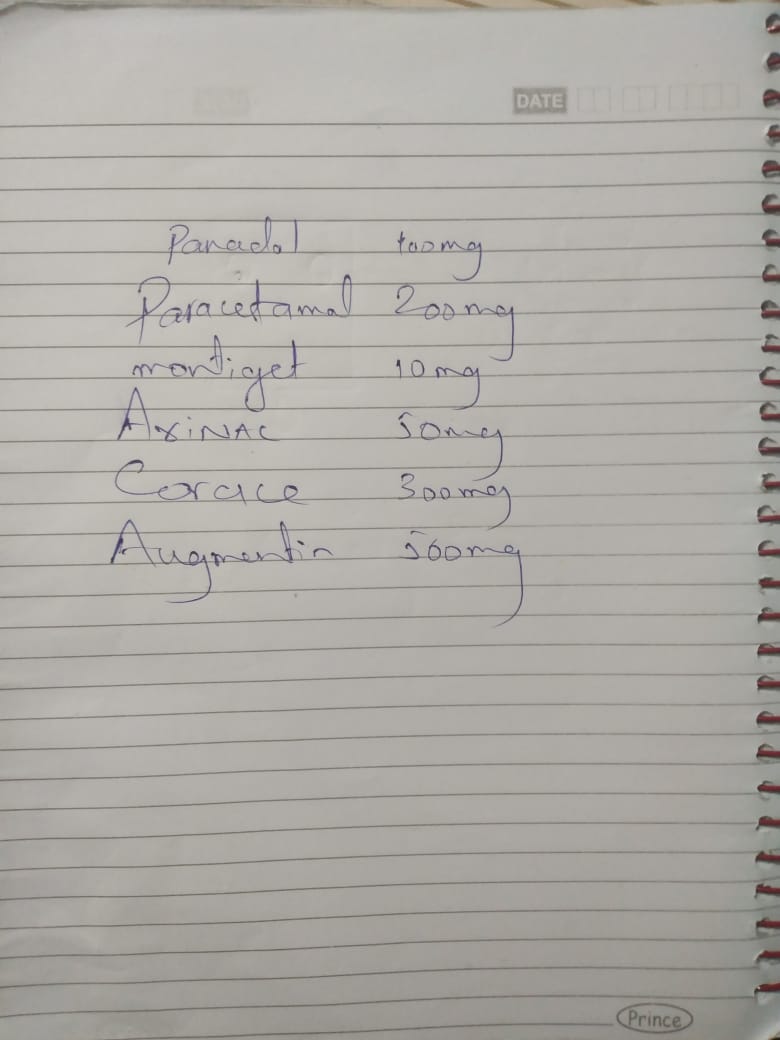 DATE
Panadol 100mg
Paracetamal 200mg
montiget 10mg
AxiNAC 50mg
Corace 300mg
Augmentin 500mg
Prince